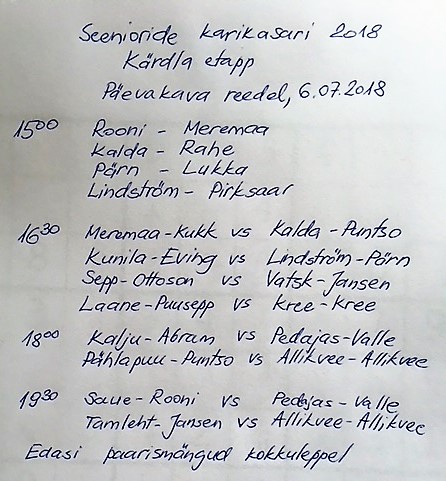 Seenioride karikasari 2018
Kärdla etapp
Päevakava reedel, 6.07.2018
15⁰⁰ Rooni - Meremaa
Kalda - Rahe
Pärn - Lukka
Lindström - Pirksaar
16³⁰ Meremaa-Kukk vs Kalda-Puntso
Kunila-Eving vs Lindström-Pärn
Sepp-Ottoson vs Vatsk-Jansen
Laane-Puusepp vs Kree-Kree
18⁰⁰ Kalju-Abram vs Pedajas-Valle
Pählapuu-Puntso vs Allikvee-Allikvee
19³⁰ Saue-Rooni vs Pedajas-Valle
Tamleht-Jansen vs Allikvee-Allikvee
Edasi paarismängud kokkuleppel